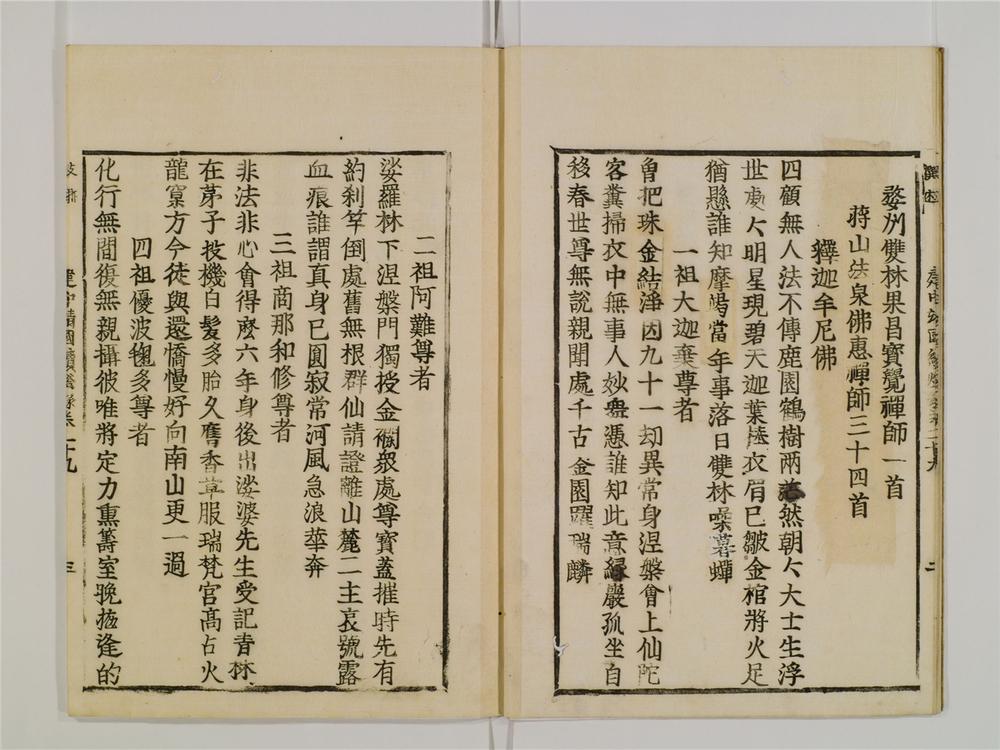 婺州雙林果昌寶覺禪師一首
蔣山法泉佛惠禪師三十四首
釋迦牟尼佛
四顧無人法不傳鹿園鶴樹兩茫然朝人大士生浮
世夷人明星現碧天迦葉衣屑已皺金棺將火足
猶懸誰知摩竭當年事落日雙林噪暮蟬
一祖大迦葉尊者
曾把珠金結淨因九十一劫異常身涅槃會上仙陀
客糞掃衣中無事人妙盡憑誰知此意緣巖孤坐自
移春世尊無說親聞處千古金園躍瑞麟
二
二祖阿難尊者
娑羅林下涅槃門獨授金襴眾處尊寶蓋摧時先有
約刹竿倒處舊無根群仙請證離山麓二主哀號露
血痕誰謂真身已圓寂常河風急浪華奔
三祖商那和修尊者
非法非心會得麽六年身後出娑婆先生受記青林
在苐子投機白髮多胎久膺香草服瑞梵宮髙占火
龍窟方今徒與還憍慢好向南山更一過
四祖優波毱多尊者
化行無間復無親攝彼唯將定力熏籌室晚拖逢的
建中靖國續燈錄卷二十九
三